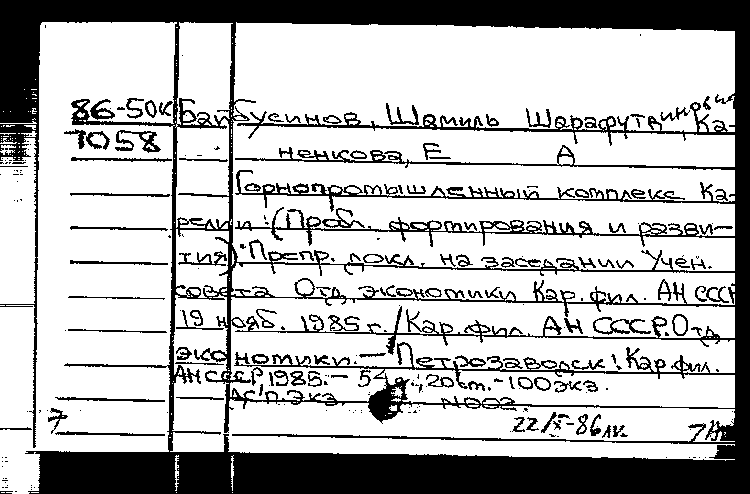 86-50к Байбусинов, Шамиль Шарафутдинович, Ка-
7058 ненкова, Е А
Горнопромышленный комплекс Ка-
релии: (Пробл. формирования и разви-
тия): Препр. докл. на заседании Учен.
совета Отд. экономики Кар. фил. АН СССР
19 нояб. 1985 г. / Кар. фил. АН СССР. Отд.
экономики. - Петрозаводск: Кар. фил.
АН СССР, 1985. - 54 с.; 20 см. - 100 экз.
экз. N002.
7 22/X-86